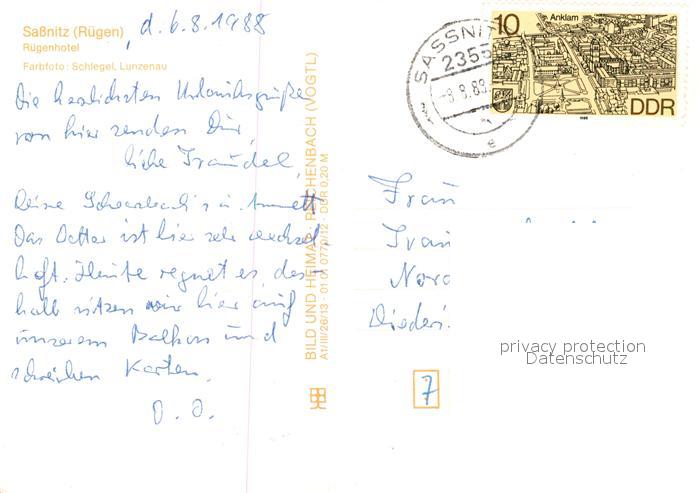 Saßnitz (Rügen)
Rügenhotel
Farbfoto: Schlegel, Lunzenau
, d. 6.8.1988
Die herzlichsten Urlaubsgrüße
von hier senden Dir,
liebe Traudel,
Deine
Das Wetter ist hier sehr wechsel-
haft. Heute regnet es, des-
halb sitzen wir hier auf
unserem Balkon und
schreiben Karten.
BILD UND HEIMAT REICHENBACH (VOGTL)
A1/III/26/13 01 01 0770/12 DDR 0,20 M
SASSNITZ
2355
8.8.88
e
10
Anklam
DDR
1988
Frau
Trau
Nord
7
privacy protection
Datenschutz